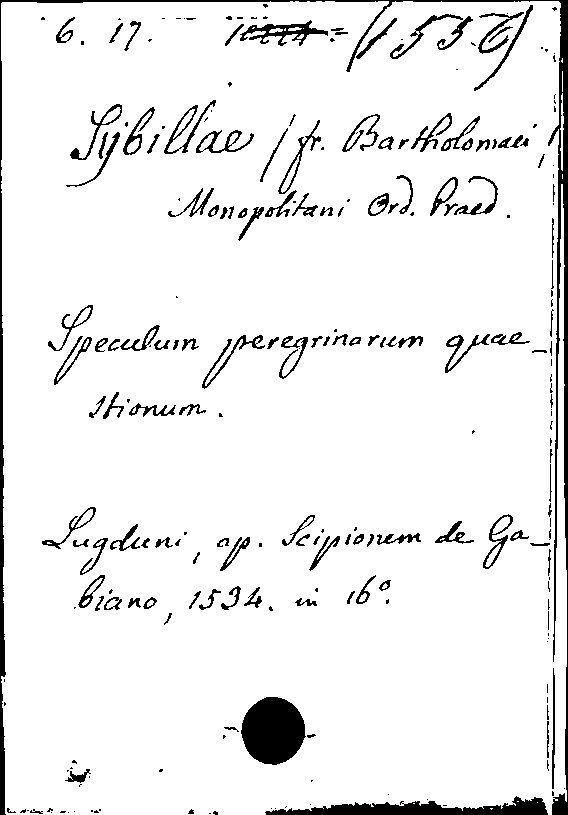 6. 17. (1556)
Sybillae / fr. Bartholomaei /
Monopolitani Ord. Praed.
Speculum peregrinarum quae_
stionum.
Lugduni, ap. Scipionem de Ga_
biano, 1534. in 16º.